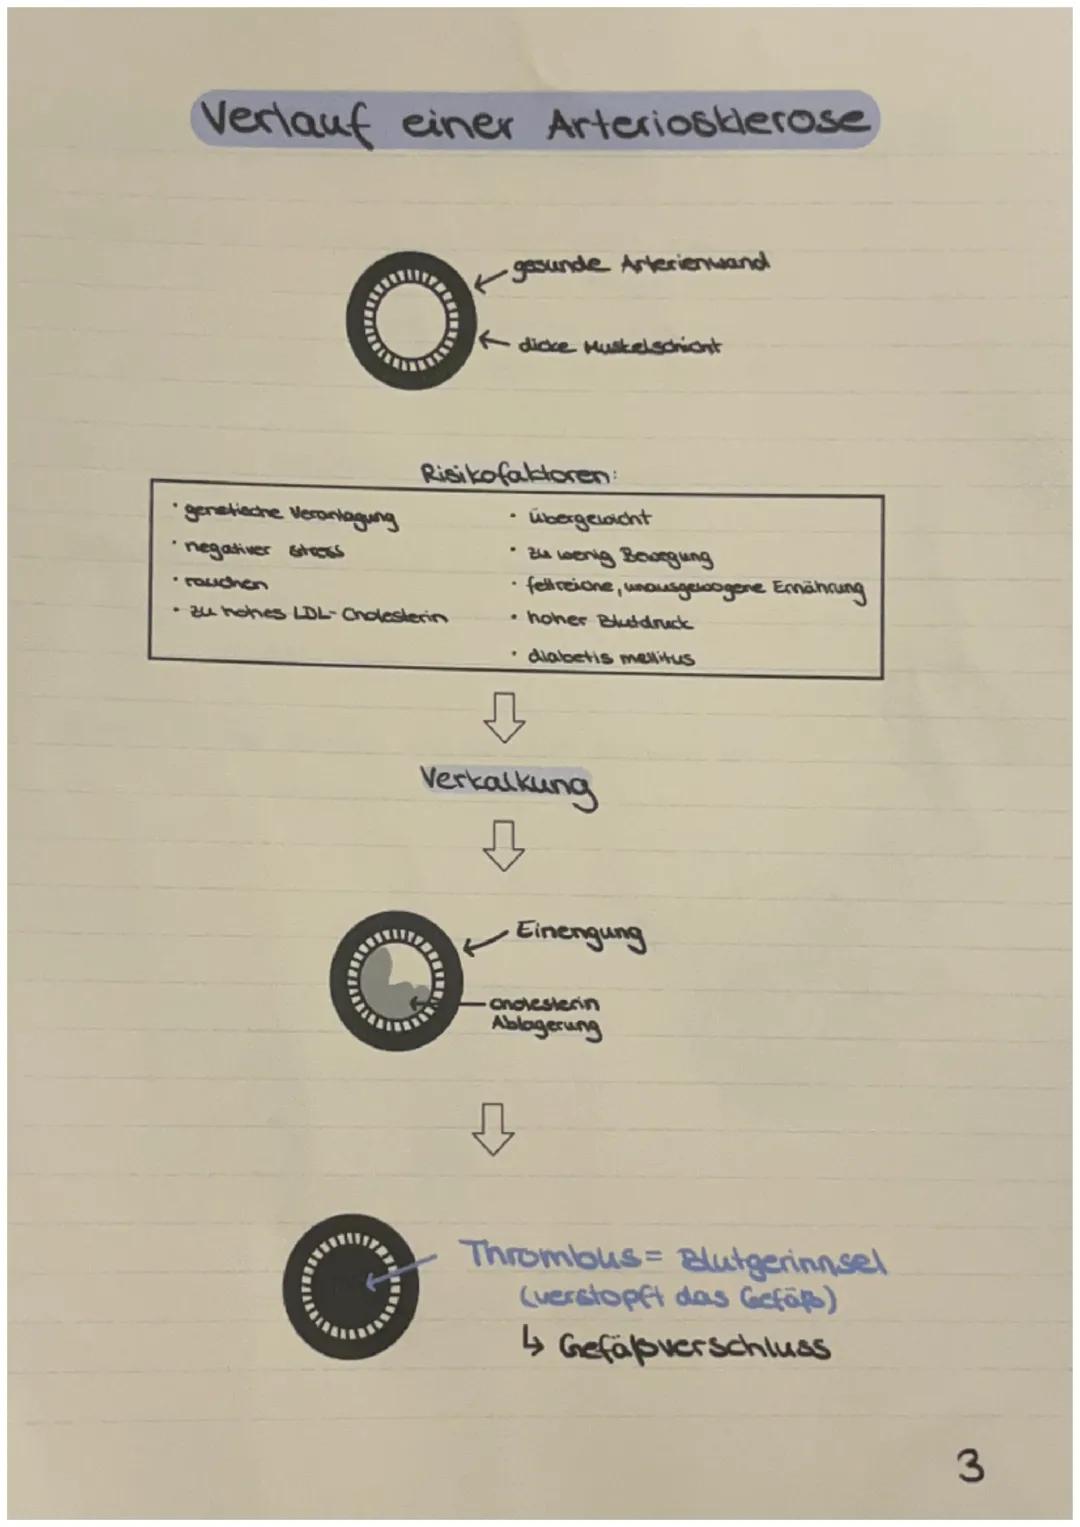 Verlauf einer Arteriosklerose
gesunde Arterienwand
dicke Muskelschicht
Risikofaktoren:
• genetische Veranlagung
• negativer Stress
• rauchen
• zu hohes LDL-Cholesterin
• übergewicht
• zu wenig Bewegung
• fettreiche, unausgewogene Ernährung
• hoher Blutdruck
• diabetis mellitus
Verkalkung
Einengung
Cholesterin
Ablagerung
Thrombus = Blutgerinnsel
(verstopft das Gefäß)
↳ Gefäßverschluss
3